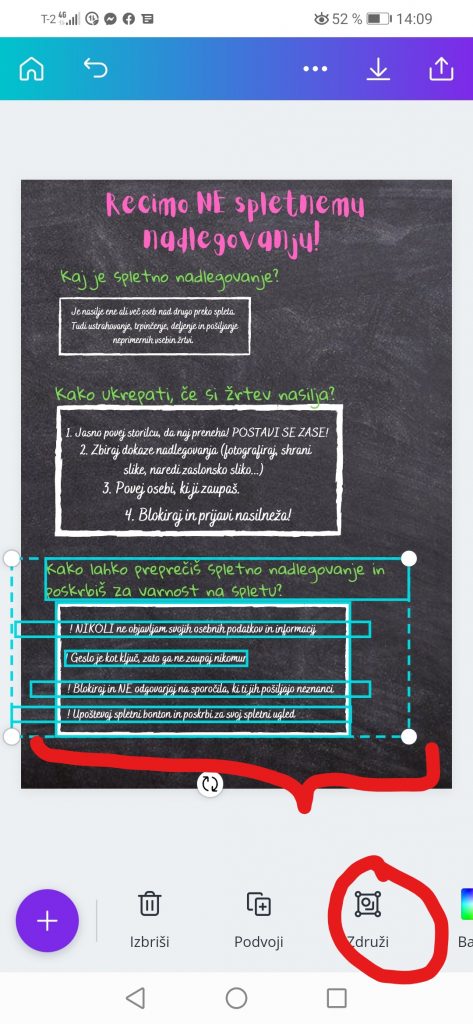 T-2 4G 52 % 14:09
Recimo NE spletnemu
nadlegovanju!
Kaj je spletno nadlegovanje?
Je nasilje ene ali več oseb nad drugo preko spleta.
Tudi ustrahovanje, trpinčenje, deljenje in pošiljanje
neprimernih vsebin žrtvi.
Kako ukrepati, če si žrtev nasilja?
1. Jasno povej storilcu, da naj preneha! POSTAVI SE ZASE!
2. Zbiraj dokaze nadlegovanja (fotografiraj, shrani
slike, naredi zaslonsko sliko...)
3. Povej osebi, ki ji zaupaš.
4. Blokiraj in prijavi nasilneža!
Kako lahko preprečiš spletno nadlegovanje in
poskrbiš za varnost na spletu?
! NIKOLI ne objavljam svojih osebnih podatkov in informacij
! Geslo je kot ključ, zato ga ne zaupaj nikomur
! Blokiraj in NE odgovarjaj na sporočila, ki ti jih pošiljajo neznanci
! Upoštevaj spletni bonton in poskrbi za svoj spletni ugled
Izbriši Podvoji Združi Ba